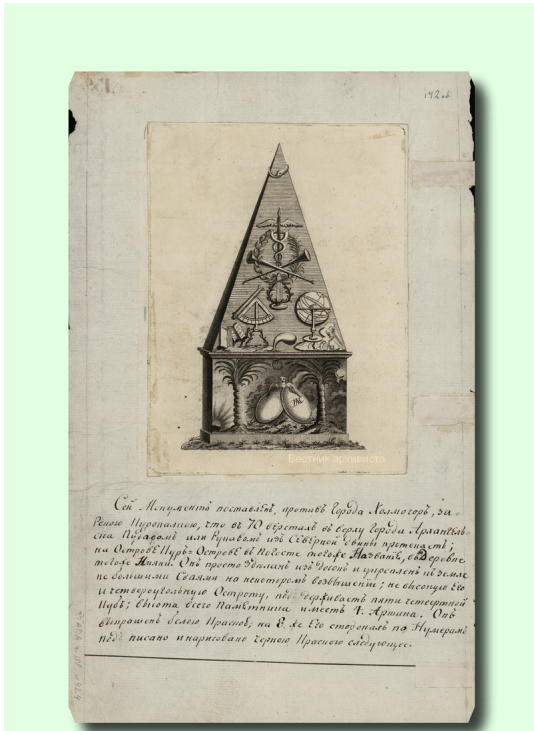 142 об
ML
Вестник архивиста
Сей Монументъ поставленъ, противъ Города Холмогоръ, за
рекою Куропалкою, что въ 70 верстахъ въ верху Города Архангель-
ска Рукавомъ или Рукавомъ изъ Северной Двины протекаетъ;
на Острове Куръ-Острове въ Погосте тогоже Названiя, въ Деревне
тогоже Имяни. Онъ просто зделанъ изъ Досокъ и укрепленъ въ земле
не большими Сваями на некоторомъ возвышенiи; не высокую Его
и четвероугольную Острому, поддерживаетъ пяти четвертной
Кубъ; высота всего Памятника имеетъ 4. Аршина. Онъ
выкрашенъ белою Краскою, на 8. же Его сторонахъ по Нумерамъ
писано и нарисовано черною Краскою следующее.